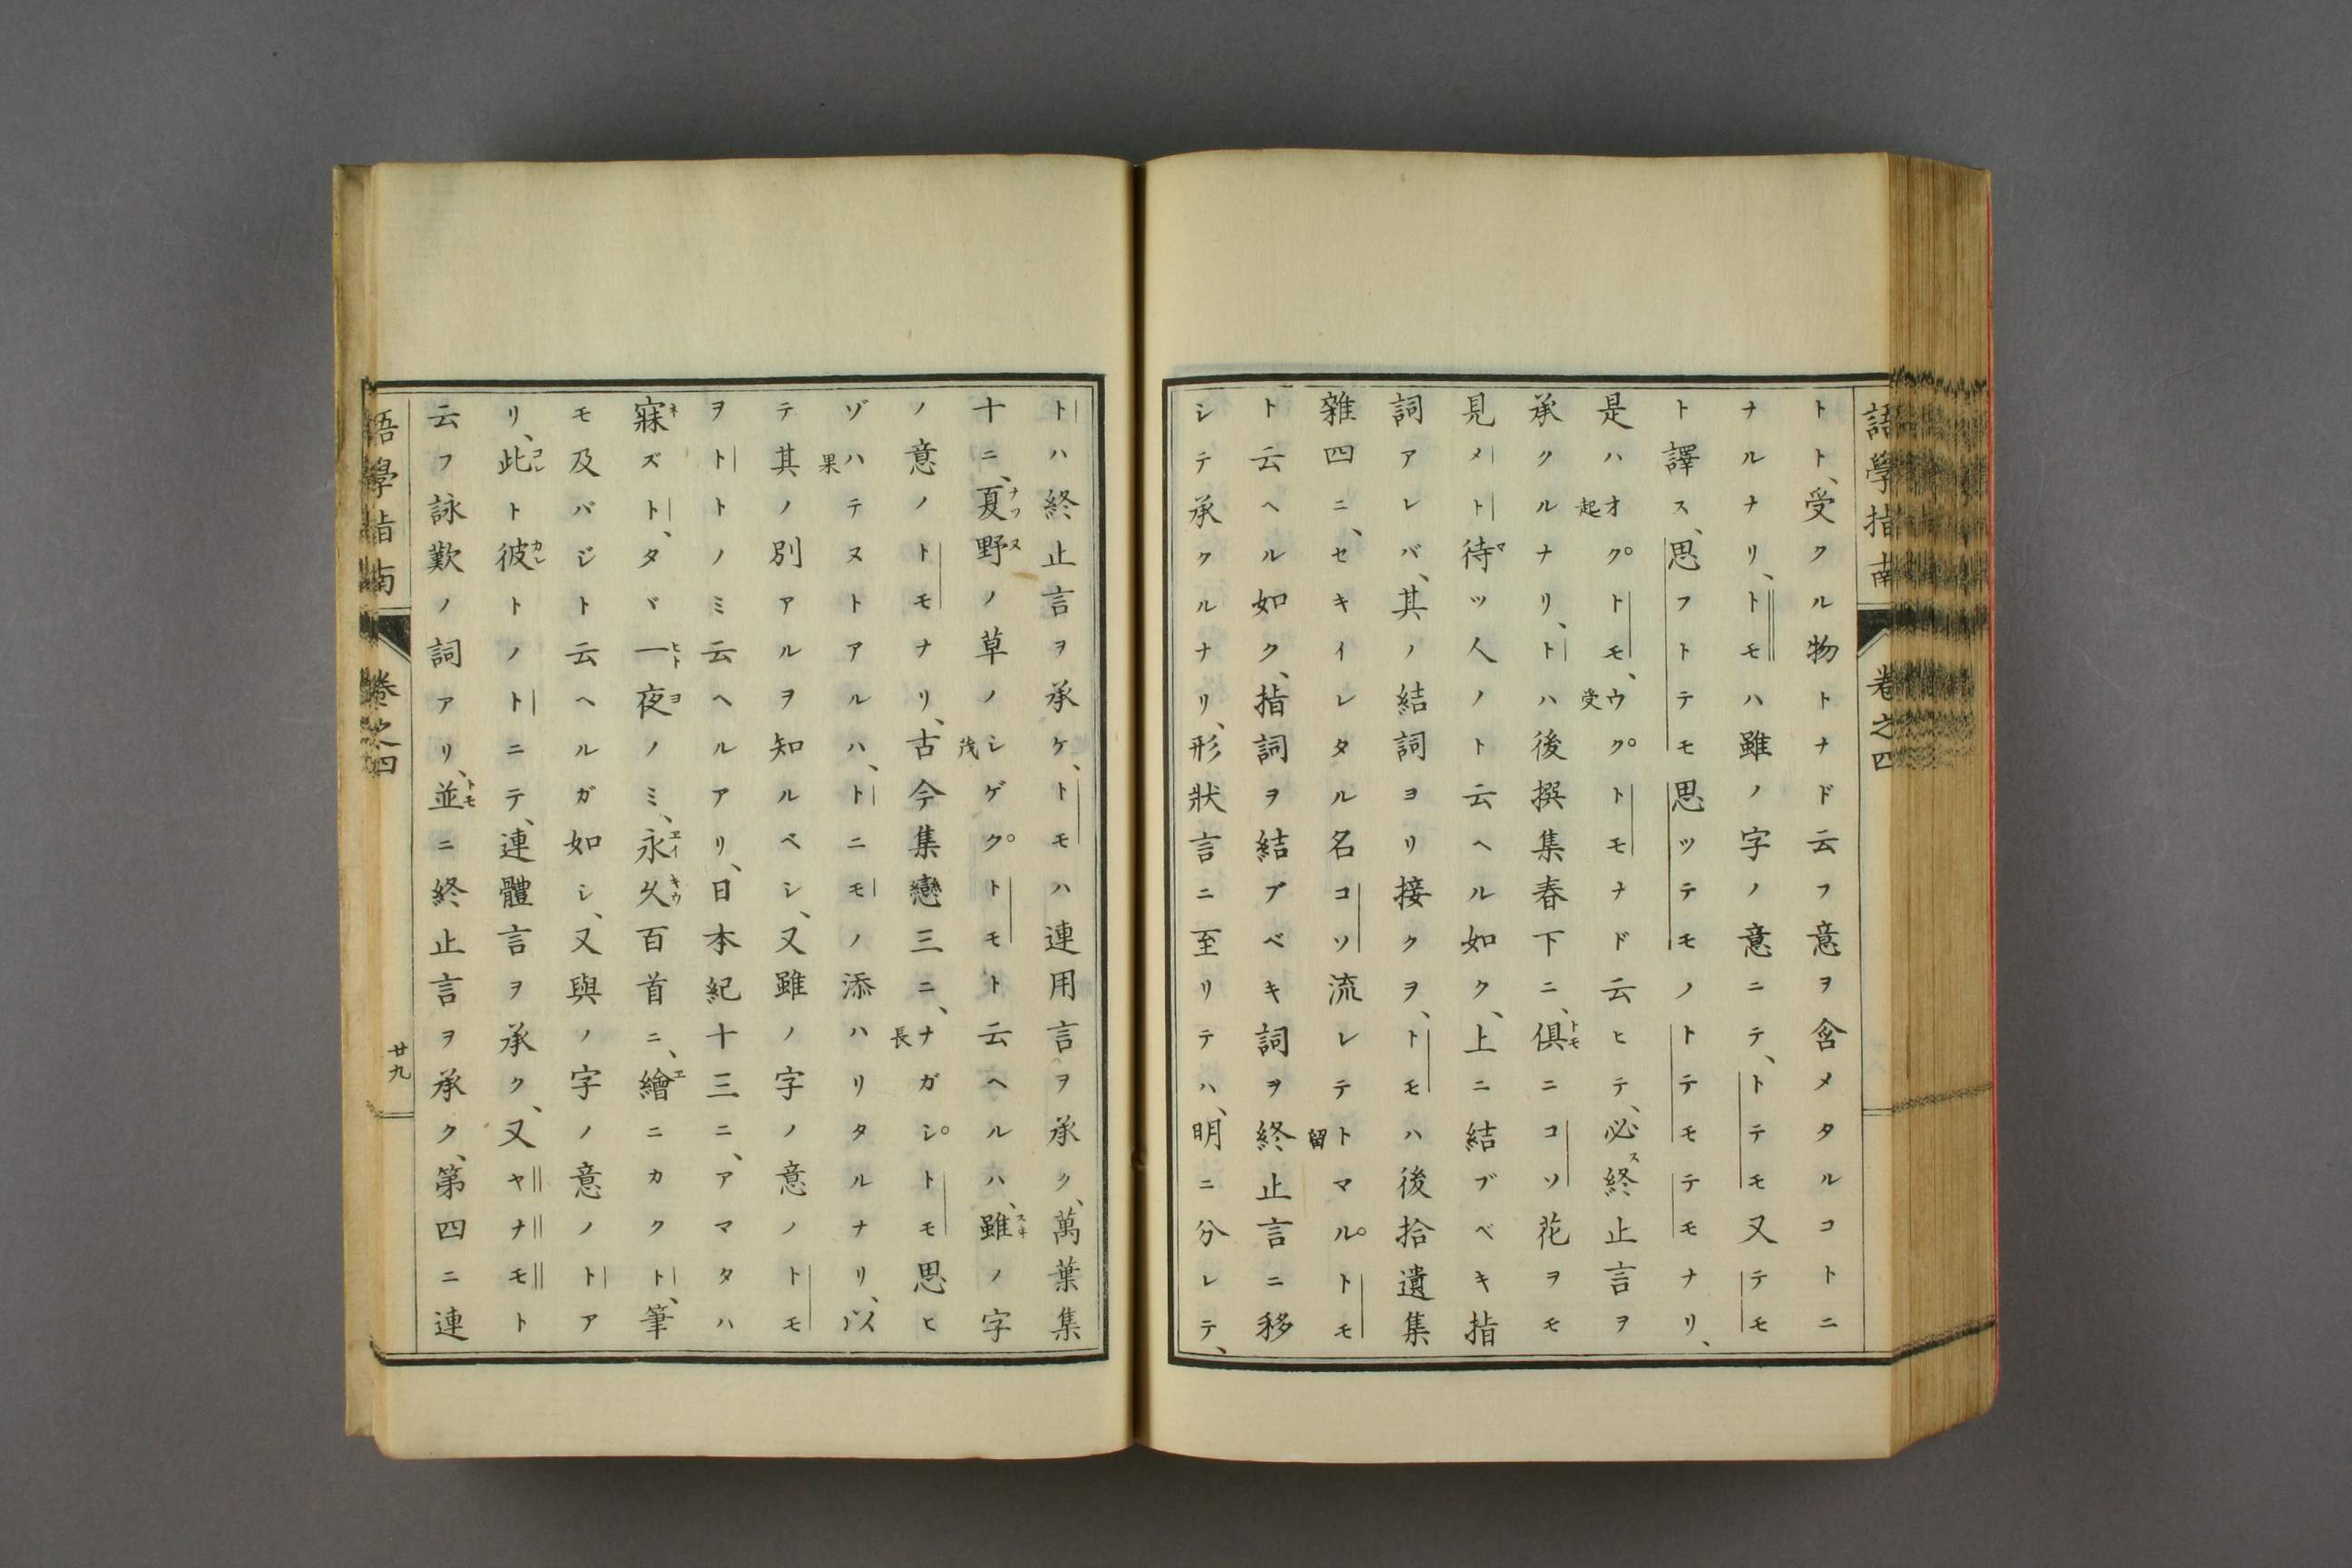 語學指南 卷之四
トト、受クル物トナド云フ意ヲ含メタルコトニ
ナルナリ、トモハ雖ノ字ノ意ニテ、トテモ又テモ
ト譯ス、思フトテモ思ツテモノトテモテモナリ、
是ハオ起ク。トモ、ウ受ク。トモナド云ヒテ、必ス終止言ヲ
承クルナリ、トハ後撰集春下ニ、倶トモニコソ花ヲモ
見メト待マツ人ノト云ヘル如ク、上ニ結ブベキ指
詞アレバ、其ノ結詞ヨリ接クヲ、トモハ後拾遺集
雜四ニ、セキイレタル名コソ流レテト留マル。トモ
ト云ヘル如ク、指詞ヲ結ブベキ詞ヲ終止言ニ移
シテ承クルナリ、形狀言ニ至リテハ、明ニ分レテ、
トハ終止言ヲ承ケ、トモハ連用言ヲ承ク、萬葉集
十ニ、夏ナツ野ヌノ草ノシ茂ゲク。トモト云ヘルハ、雖スヰノ字
ノ意ノトモナリ、古今集戀三ニ、ナ長ガシ。トモ思ヒ
ゾハ果テヌトアルハ、トニモノ添ハリタルナリ、以
テ其ノ別アルヲ知ルベシ、又雖ノ字ノ意ノトモ
ヲトトノミ云ヘルアリ、日本紀十三ニ、アマタハ
寐ネズト、タヾ一ヒト夜ヨノミ、永エイ久キウ百首ニ、繪エニカクト、筆
モ及バジト云ヘルガ如シ、又與ノ字ノ意ノトア
リ、此コレト彼カレトノトニテ、連體言ヲ承ク、又ヤナモト
云フ詠歎ノ詞アリ、並トモニ終止言ヲ承ク、第四ニ連
語學指南 卷之四 廿九